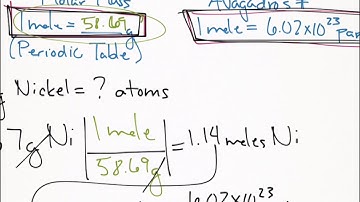 Molar Mass
1 mole = 58.69g
(Periodic Table)
Avagadros #
1 mole = 6.02x10²³ par
Nickel = ? atoms
7g Ni | 1 mole / 58.69g | = 1.14 moles Ni
6.02x10²³